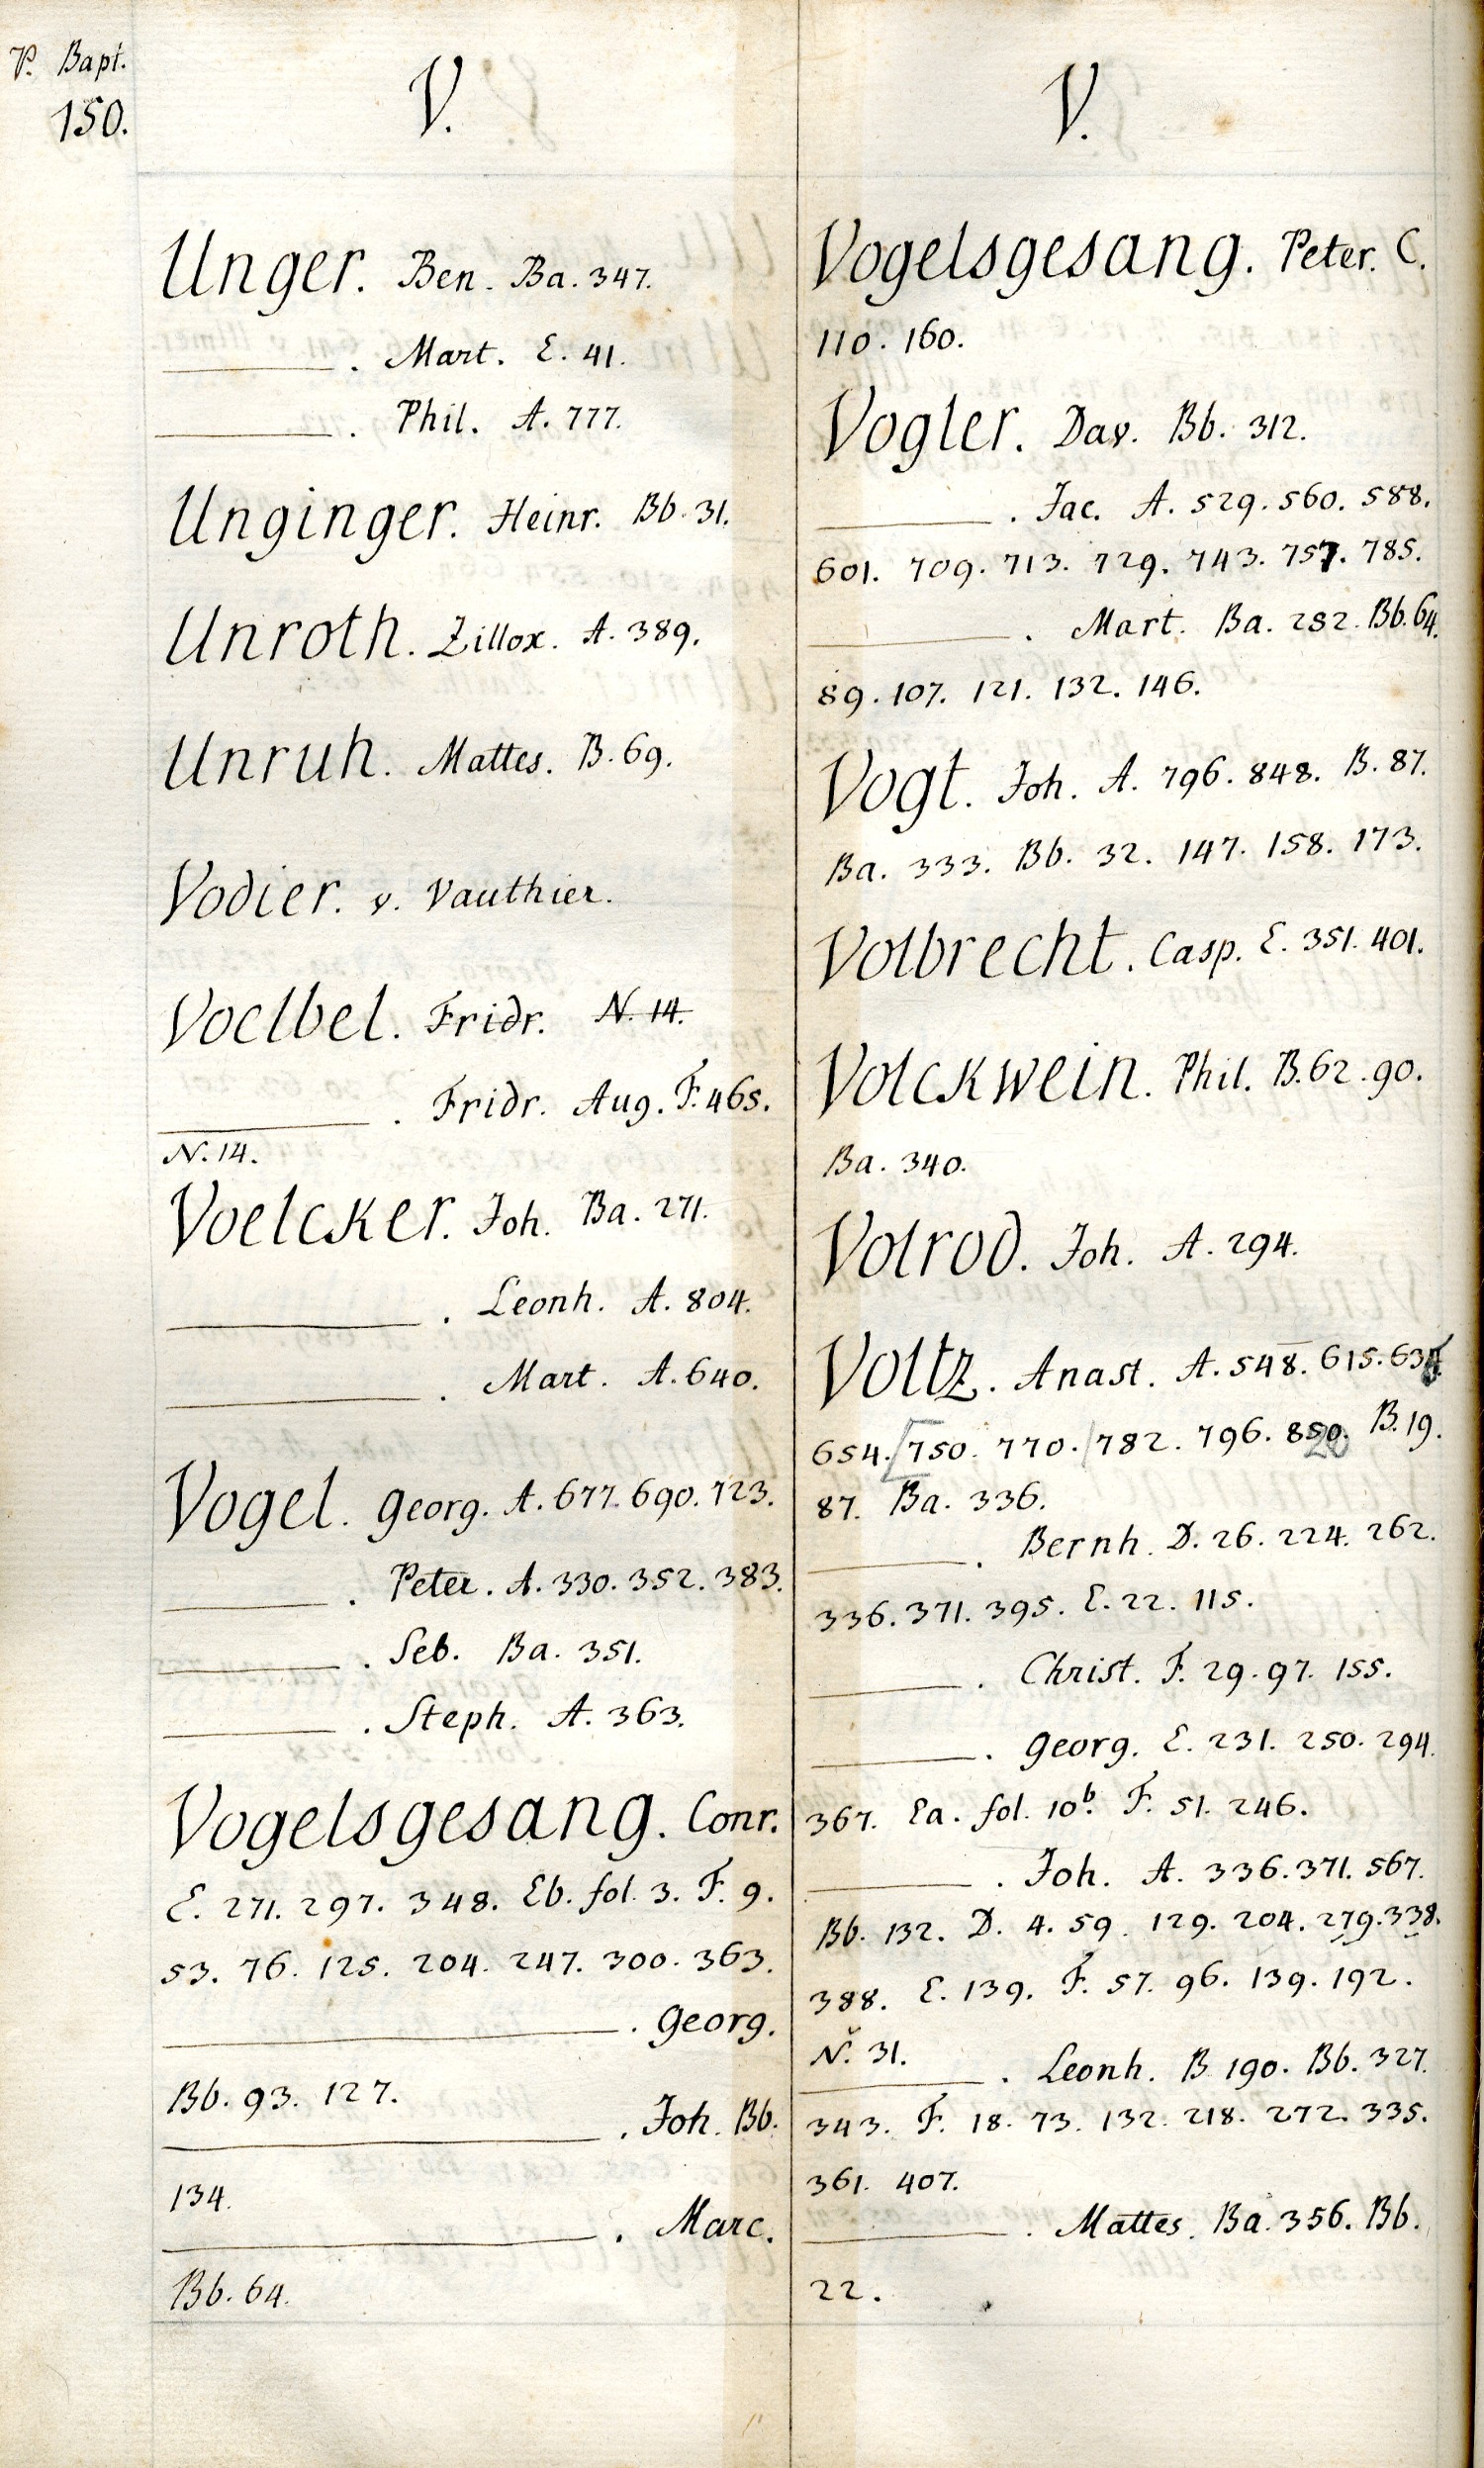 P. Bapt.
150.
V.
Unger. Ben. Ba. 347.
———. Mart. E. 41.
———. Phil. A. 777.
Unginger. Heinr. Bb. 31.
Unroth. Zillox. A. 389.
Unruh. Mattes. B. 69.
Vodier. v. Vauthier.
Voelbel. Fridr. N. 14.
———. Fridr. Aug. F. 465.
N. 14.
Voelcker. Joh. Ba. 271.
———. Leonh. A. 804.
———. Mart. A. 640.
Vogel. Georg. A. 677. 690. 723.
———. Peter. A. 330. 352. 383.
———. Seb. Ba. 351.
———. Steph. A. 363.
Vogelsgesang. Conr.
E. 271. 297. 348. Eb. fol. 3. F. 9.
53. 76. 125. 204. 247. 300. 363.
———. Georg.
Bb. 93. 127.
———. Joh. Bb.
134.
———. Marc.
Bb. 64.
V.
Vogelsgesang. Peter. C.
110. 160.
Vogler. Dav. Bb. 312.
———. Jac. A. 529. 560. 588.
601. 709. 713. 729. 743. 757. 785.
———. Mart. Ba. 282. Bb. 64.
89. 107. 121. 132. 146.
Vogt. Joh. A. 796. 848. B. 87.
Ba. 333. Bb. 32. 147. 158. 173.
Volbrecht. Casp. E. 351. 401.
Volckwein. Phil. B. 62. 90.
Ba. 340.
Volrod. Joh. A. 294.
Voltz. Anast. A. 548. 615.
654. [750. 770. /782. 796. 850. B. 19.
87. Ba. 336.
———. Bernh. D. 26. 224. 262.
336. 371. 395. E. 22. 115.
———. Christ. F. 29. 97. 155.
———. Georg. E. 231. 250. 294.
367. Ea. fol. 10b. F. 51. 246.
———. Joh. A. 336. 371. 567.
Bb. 132. D. 4. 59. 129. 204. 279. 338.
388. E. 139. F. 57. 96. 139. 192.
N. 31.
———. Leonh. B 190. Bb. 327.
343. F. 18. 73. 132. 218. 272. 335.
361. 407.
———. Mattes. Ba. 356. Bb.
22.